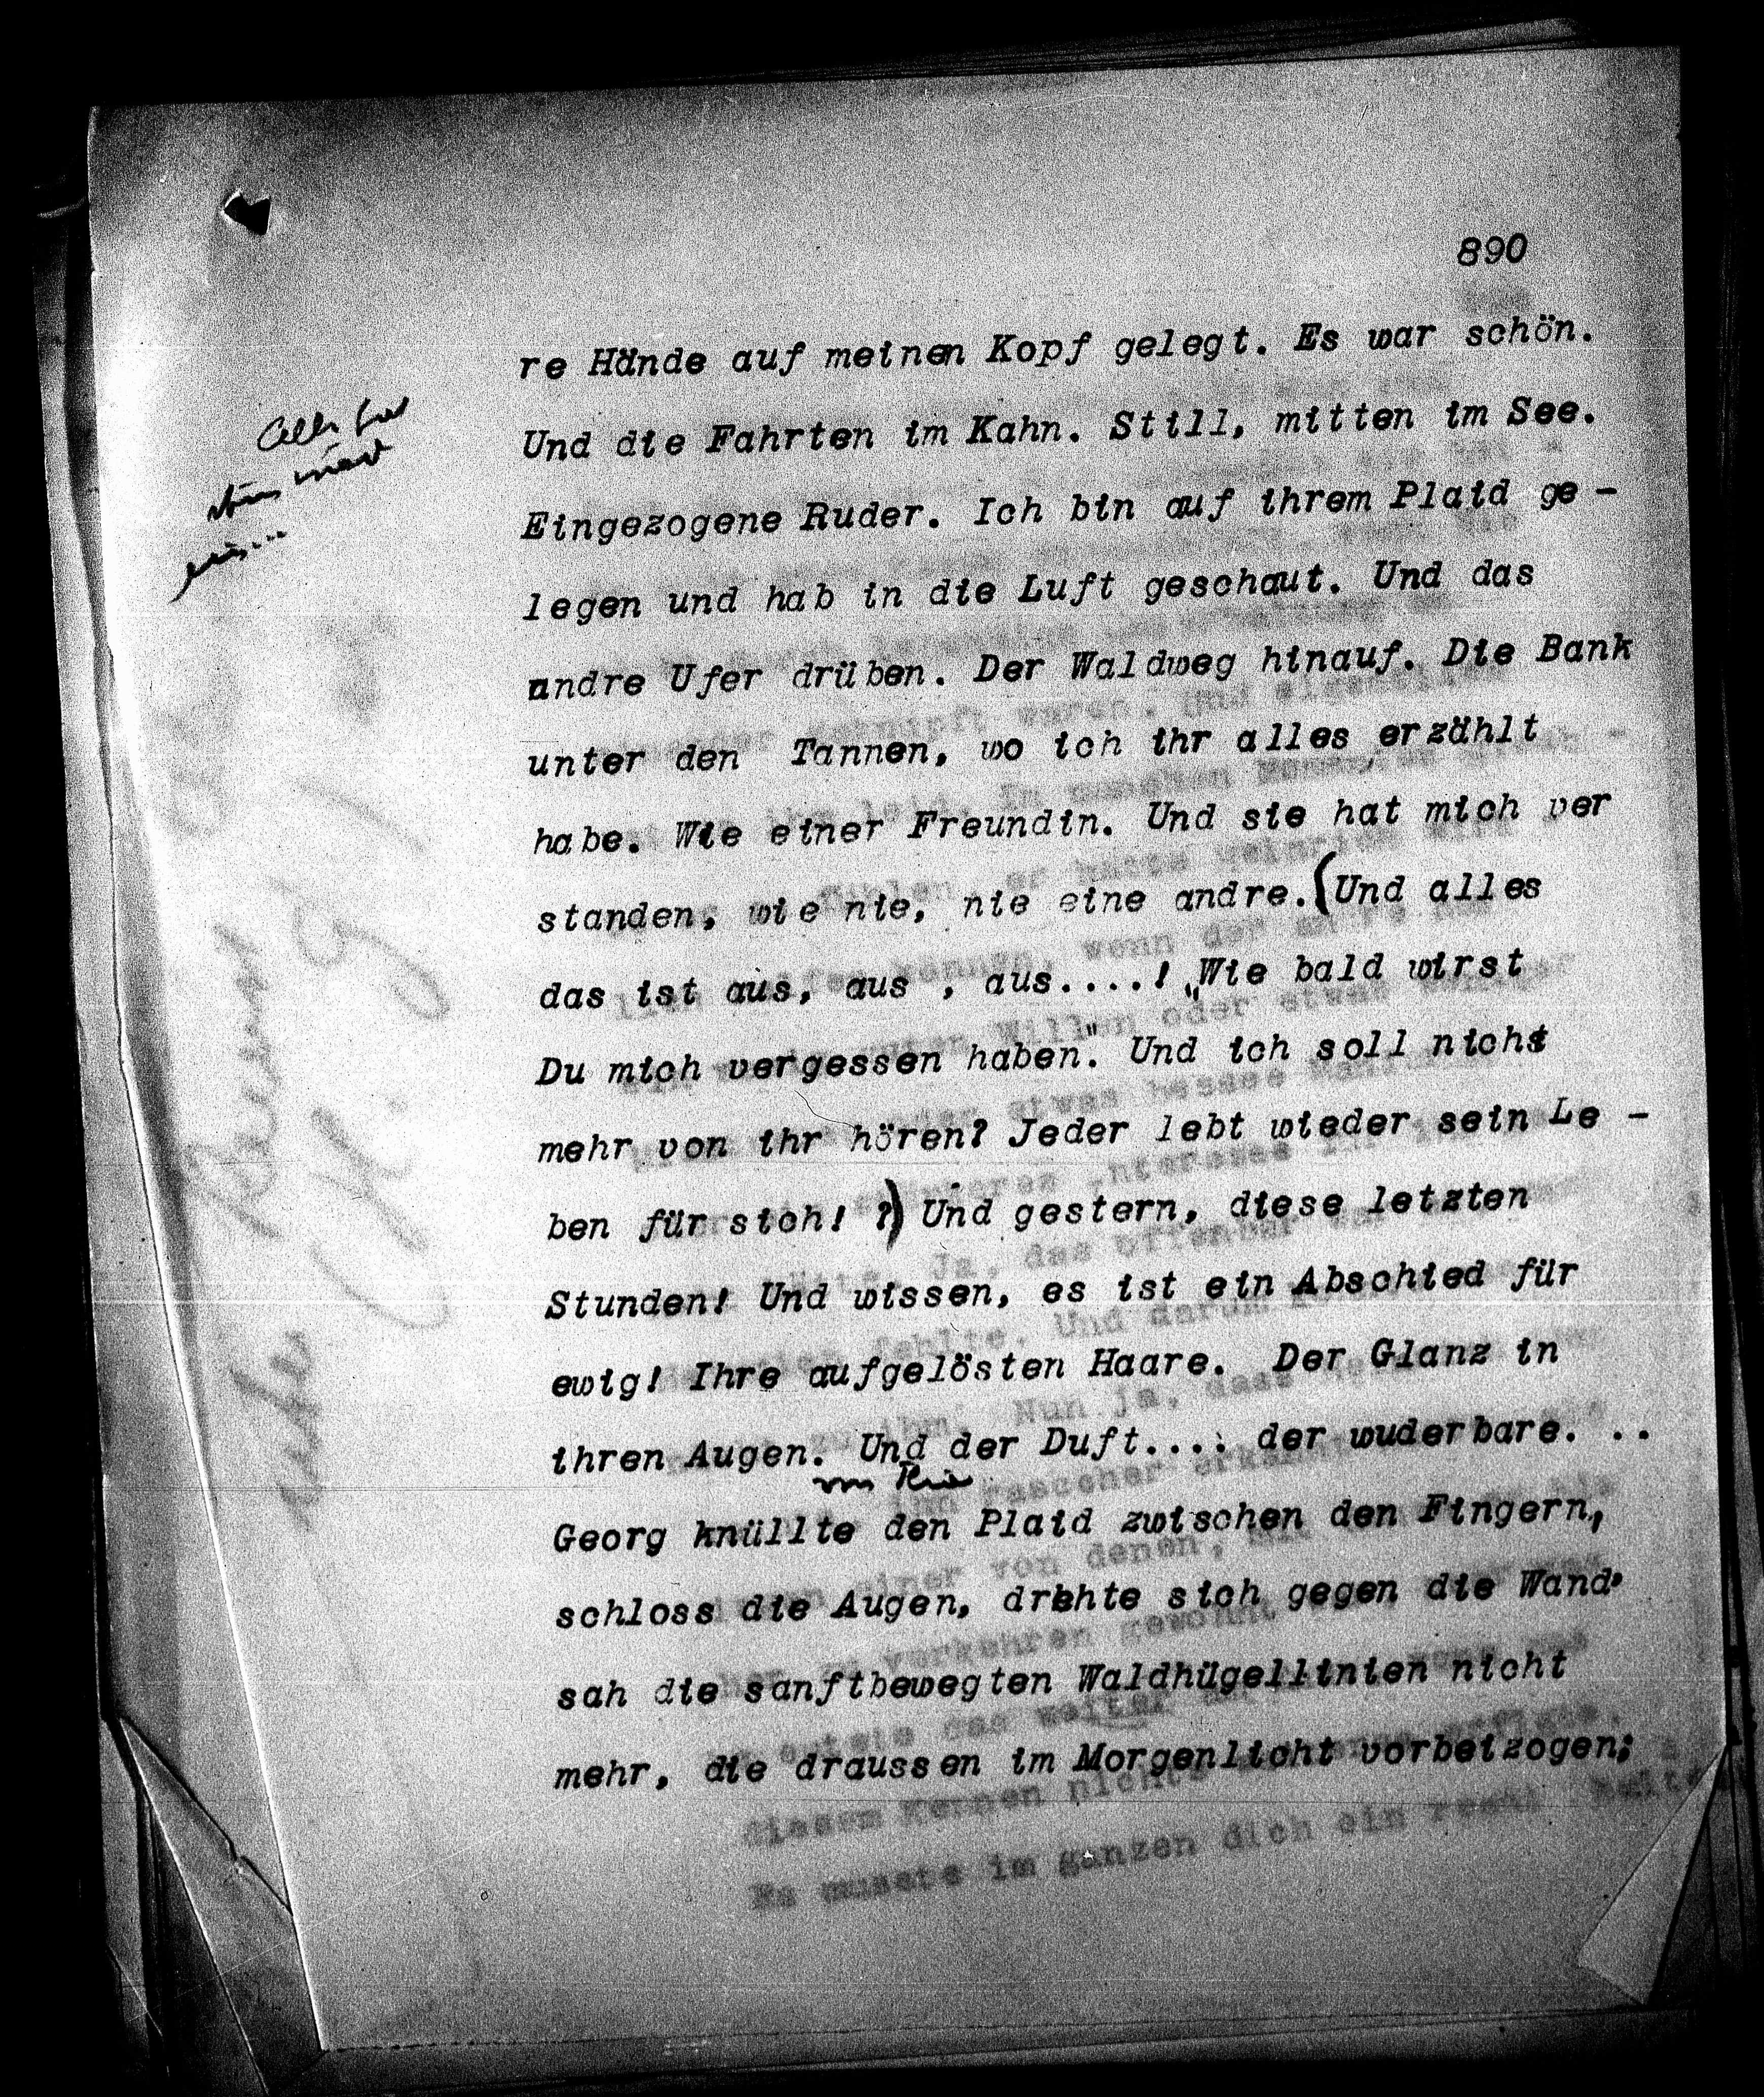 890
re Hände auf meinen Kopf gelegt. Es war schön.
Und die Fahrten im Kahn. Still, mitten im See.
Eingezogene Ruder. Ich bin auf ihrem Plaid ge -
legen und hab in die Luft geschaut. Und das
andre Ufer drüben. Der Waldweg hinauf. Die Bank
unter den Tannen, wo ich ihr alles erzählt
habe. Wie einer Freundin. Und sie hat mich ver
standen, wie nie, nie eine andre. (Und alles
das ist aus, aus , aus....! „Wie bald wirst
Du mich vergessen haben." Und ich soll nichts
mehr von ihr hören? Jeder lebt wieder sein Le -
ben für sich! ?) Und gestern, diese letzten
Stunden! Und wissen, es ist ein Abschied für
ewig! Ihre aufgelösten Haare. Der Glanz in
ihren Augen. Und der Duft.... der wuderbare. ..
Georg knüllte den Plaid zwischen den Fingern,
schloss die Augen, drehte sich gegen die Wand,
sah die sanftbewegten Waldhügellinien nicht
mehr, die draussen im Morgenlicht vorbeizogen;